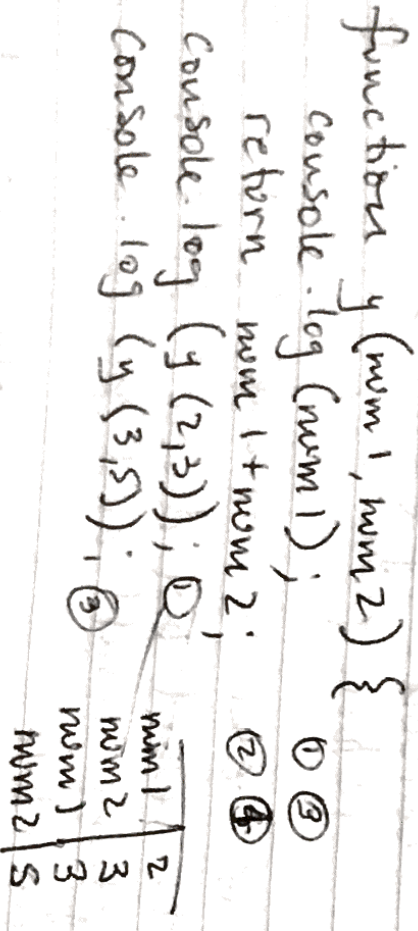 function y (num1, num2) {
console.log (num1); ① ③
return num1 + num2; ② ④
console.log (y (2,3)); ①
console.log (y (3,5)); ③
num1 2
num2 3
num1 3
num2 5